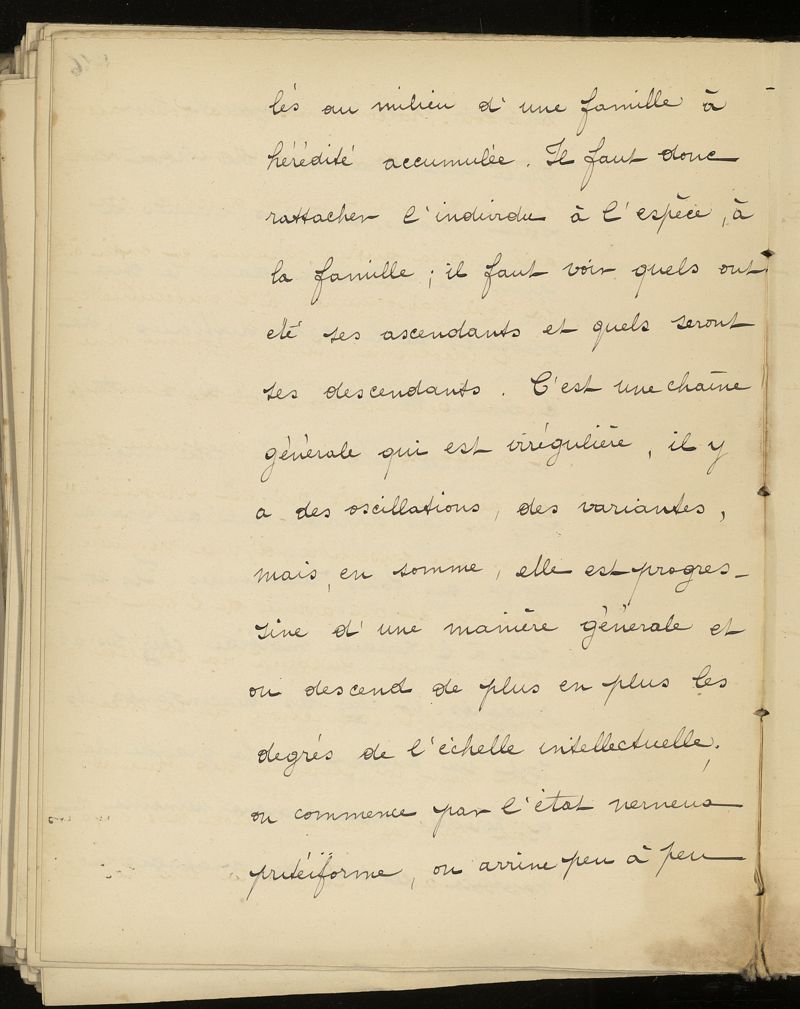 lés au milieu d'une famille à
hérédité accumulée. Il faut donc
rattacher l'individu à l'espèce, à
la famille ; il faut voir quels ont
été ses ascendants et quels seront
ses descendants. C'est une chaîne
générale qui est irrégulière, il y
a des oscillations, des variantes,
mais, en somme, elle est progres-
sive d'une manière générale et
on descend de plus en plus les
degrés de l'échelle intellectuelle,
on commence par l'état nerveux
protéiforme, on arrive peu à peu